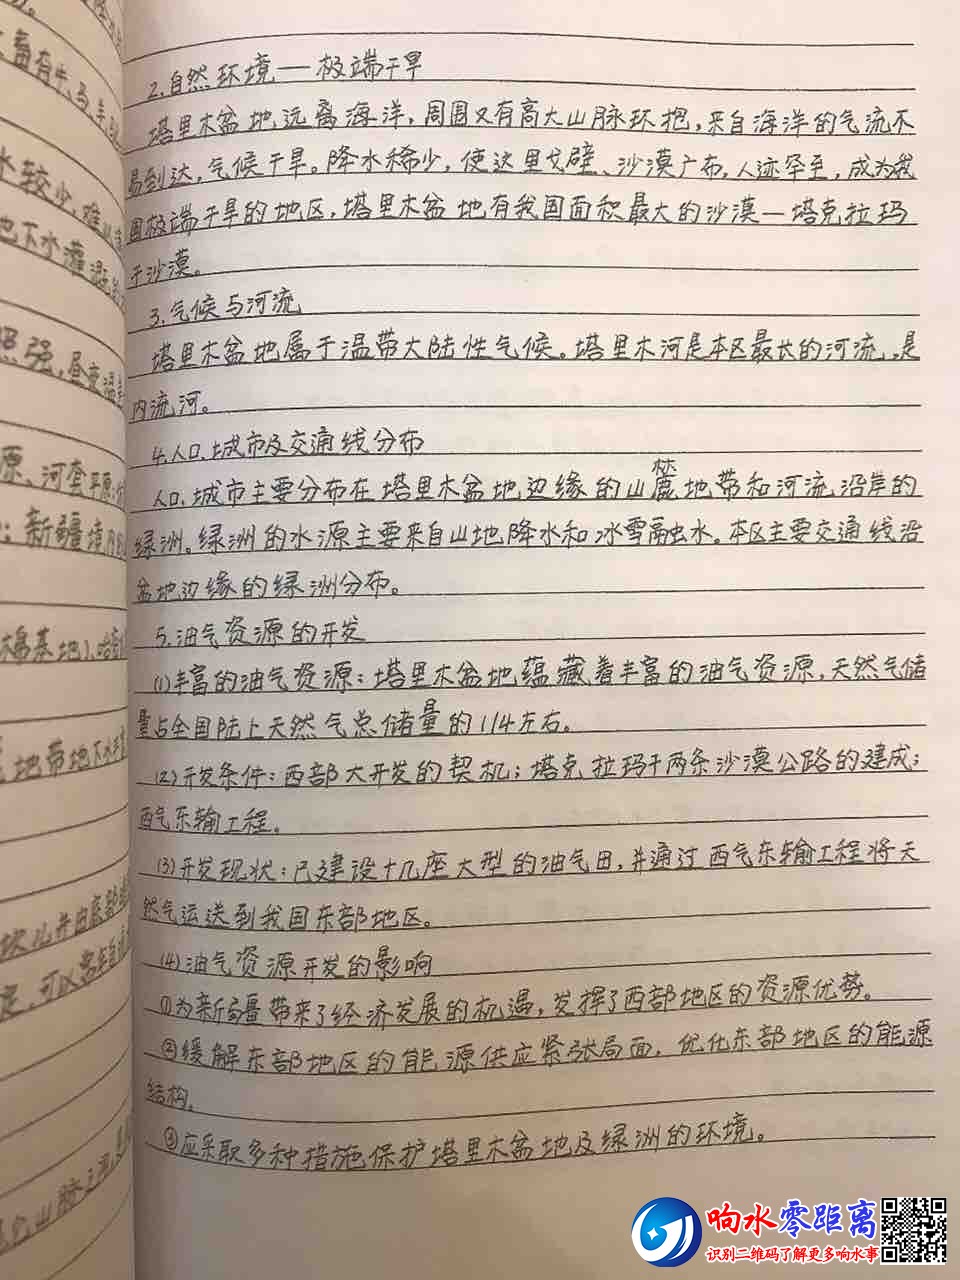 2.自然环境—极端干旱
塔里木盆地远离海洋,周围又有高大山脉环抱,来自海洋的气流不
易到达,气候干旱。降水稀少,使这里戈壁、沙漠广布,人迹罕至,成为我
国极端干旱的地区,塔里木盆地有我国面积最大的沙漠—塔克拉玛
干沙漠。
3.气候与河流
塔里木盆地属于温带大陆性气候。塔里木河是本区最长的河流,是
内流河。
4.人口、城市及交通线分布
人口、城市主要分布在塔里木盆地边缘的山麓地带和河流沿岸的
绿洲。绿洲的水源主要来自山地降水和冰雪融水。本区主要交通线沿
盆地边缘的绿洲分布。
5.油气资源的开发
(1)丰富的油气资源:塔里木盆地蕴藏着丰富的油气资源,天然气储
量占全国陆上天然气总储量的1/4左右。
(2)开发条件:西部大开发的契机;塔克拉玛干两条沙漠公路的建成;
西气东输工程。
(3)开发现状:已建设十几座大型的油气田,并通过西气东输工程将天
然气运送到我国东部地区。
(4)油气资源开发的影响
①为新疆带来了经济发展的机遇,发挥了西部地区的资源优势。
②缓解东部地区的能源供应紧张局面,优化东部地区的能源
结构。
③应采取多种措施保护塔里木盆地及绿洲的环境。
畜有牛、马、羊
水较少,难
地下水灌溉
照强,昼夜温
原、河套平原
新疆境内
棉基地)、哈密
地带地下水
坎儿井由底部
山脉之间
响水零距离
识别二维码了解更多响水事